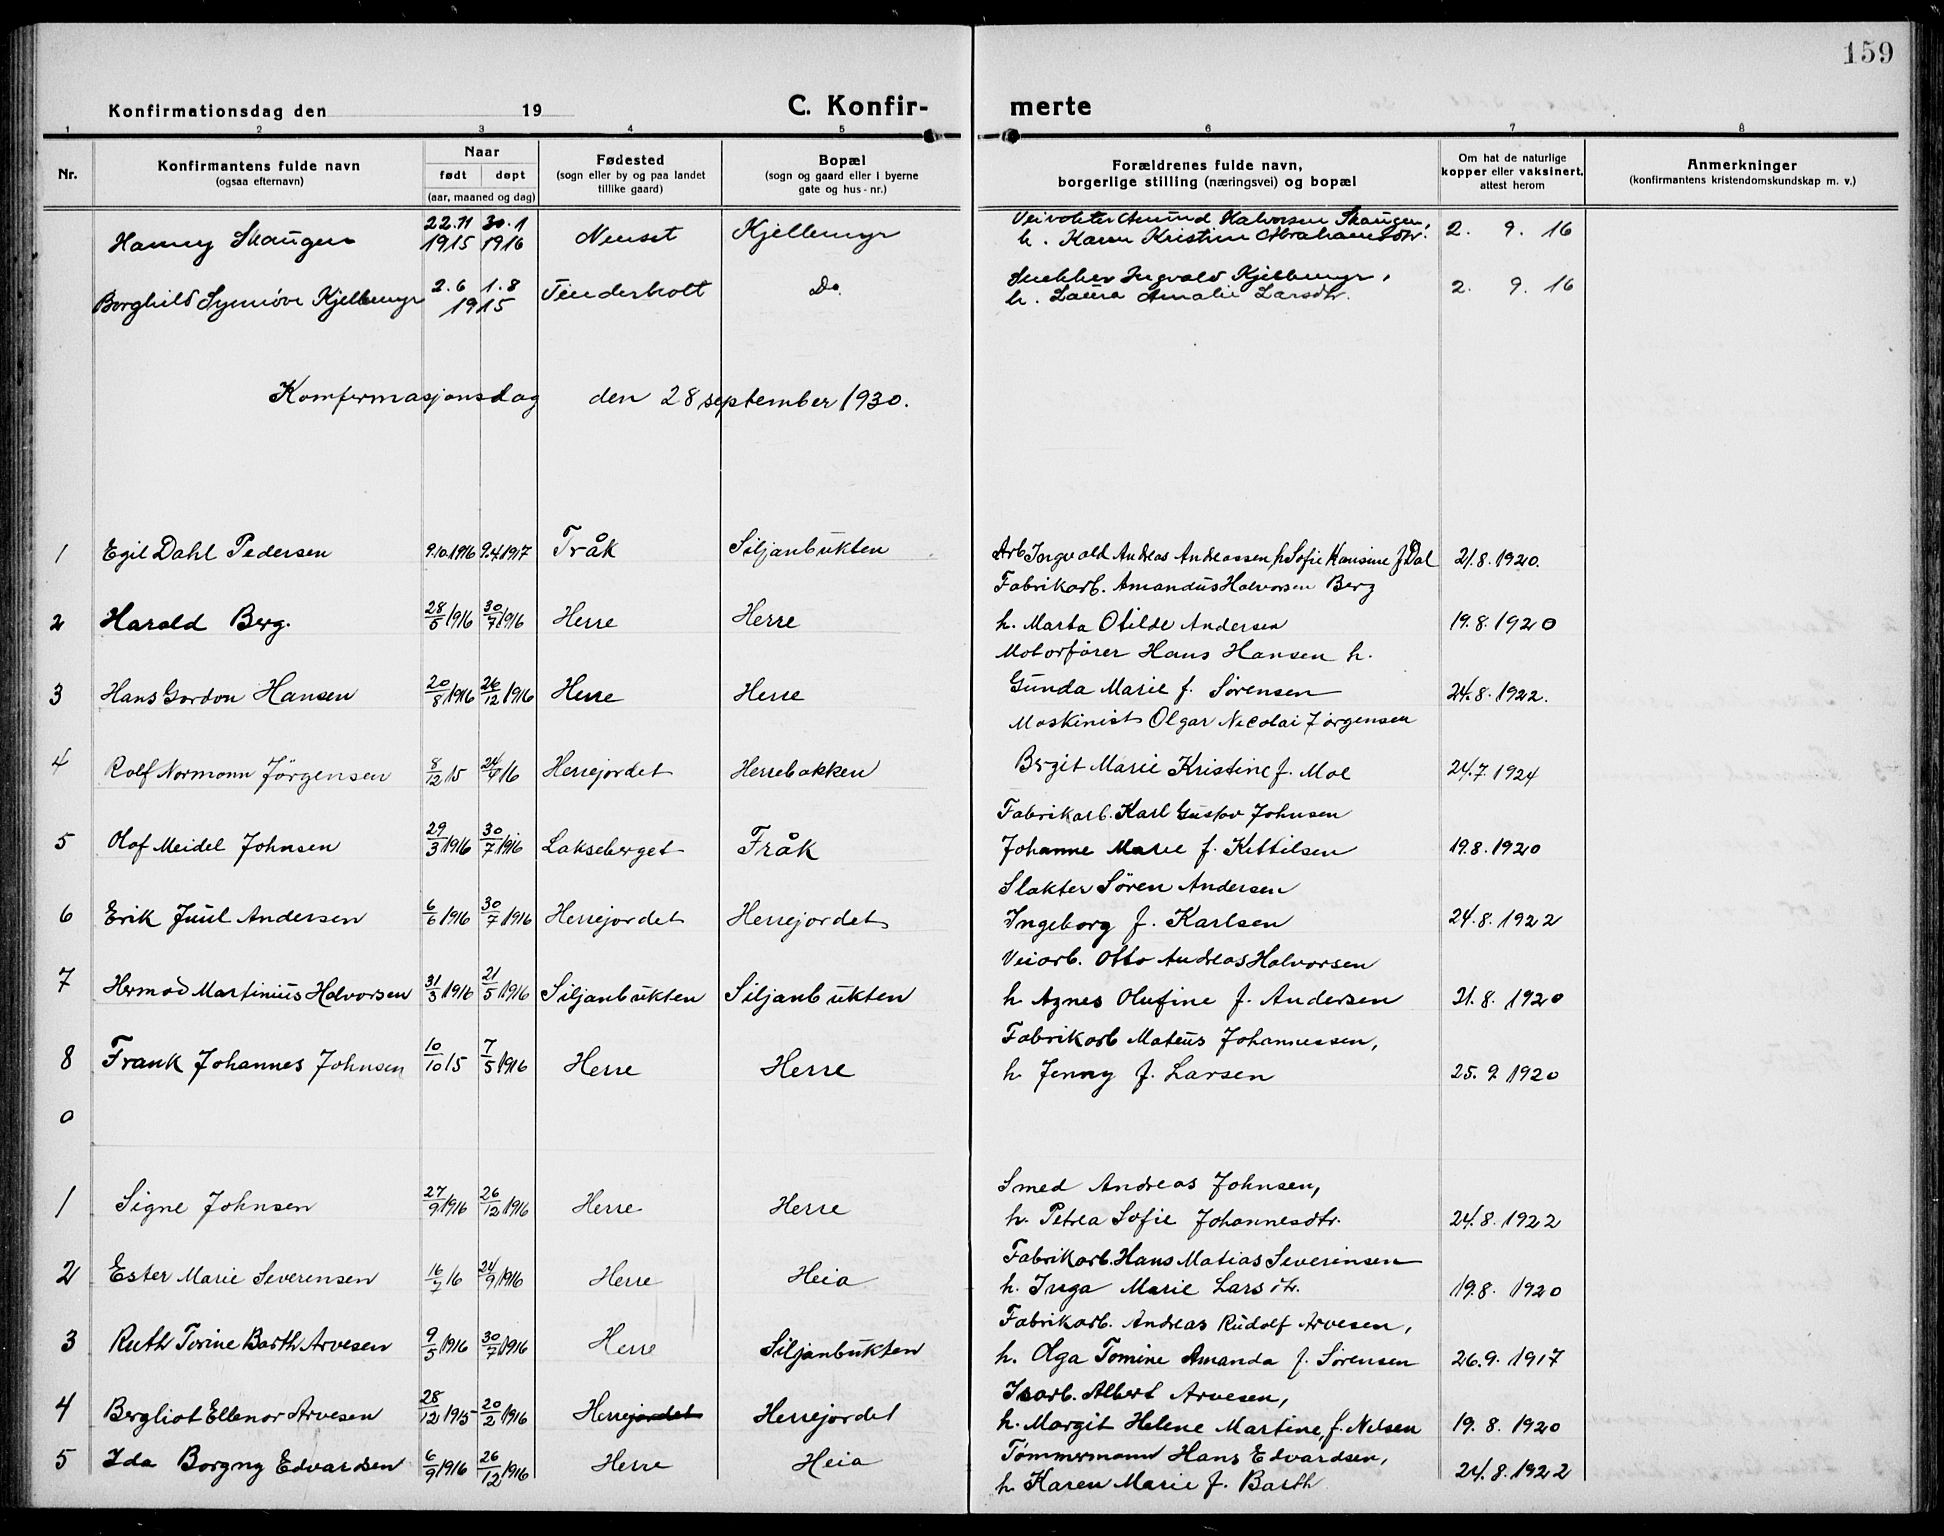 159
Konfirmationsdag den 19 C. Konfir- merte
1 2 3 4 5 6 7 8
Nr.
Konfirmantens fulde navn
(ogsaa efternavn)
Naar
født døpt
(aar, maaned og dag)
Fødested
(sogn eller by og paa landet
tillike gaard)
Bopæl
(sogn og gaard eller i byerne
gate og hus-nr.)
Forældrenes fulde navn,
borgerlige stilling (næringsvei) og bopæl
Om hat de naturlige
kopper eller vaksinert,
attest herom
Anmerkninger
(konfirmantens kristendomskundskap m. v.)
22.11 30.1 Veivokter Amund Halvorsen Skaugen,
Hanny Skaugen 1915 1916 Neuset Kjellemyr h. Karen Kristine Abrahamsdtr. 2. 9. 16
2.6 1.8 Snekker Ingvald Kjellemyr,
Borghild Synnøve Kjellemyr 1915 Tinderholt Do. h. Laura Amalie Larsdtr. 2. 9. 16
Komfermasjonsdag den 28 september 1930.
1 Egil Dahl Pedersen 9.10.1916 9.4.1917 Tråk Siljanbukten Arb. Ingvald Andreas Andreassen h Sofie Hansine f Dal 21.8.1920.
Fabrikarb. Amandus Halvorsen Berg
2 Harald Berg. 28/5 1916 30/7 1916 Herre Herre h. Marta Otilde Andersen 19.8.1920
Motorfører Hans Hansen h.
3 Hans Gordon Hansen 20/8 1916 26/12 1916 Herre Herre Gunda Marie f. Sørensen 24.8.1922.
Maskinist Olgar Nicolai Jørgensen
4 Rolf Normann Jørgensen 8/12 15 24/4 16 Herrejordet Herrebakken Birgit Marie Kristine f. Moe 24.7.1924
Fabrikarb. Karl Gustav Johnsen
5 Olaf Meidel Johnsen 29/3 1916 30/7 1916 Lakseberget Tråk Johanne Marie f. Kittilsen 19.8.1920
Slakter Søren Andersen
6 Erik Juul Andersen 6/6 1916 30/7 1916 Herrejordet Herrejordet Ingeborg f. Karlsen 24.8.1922
Veiarb. Otto Andreas Halvorsen
7 Hermod Martinius Halvorsen 31/3 1916 21/5 1916 Siljanbukten Siljanbukten h Agnes Olufine f. Andersen 21.8.1920
Fabrikarb Mateus Johannessen,
8 Frank Johannes Johnsen 10/10 15 7/5 1916 Herre Herre h. Jenny f. Larsen 25.9.1920
0
Smed Andreas Johnsen,
1 Signe Johnsen 27/9 1916 26/12 1916 Herre Herre h. Petrea Sofie Johannesdtr. 24.8.1922
Fabrikarb. Hans Matias Severinsen
2 Ester Marie Severensen 16/7 16 24/9 1916 Herre Heia h. Inga Marie Larsdtr. 19.8.1920
Fabrikarb. Andreas Rudolf Arvesen,
3 Ruth Torine Barth Arvesen 9/5 1916 30/7 1916 Herre Siljanbukten h. Olga Tomine Amanda f. Sørensen 26.9.1917
Isarb. Albert Arvesen,
4 Bergliot Ellenor Arvesen 28/12 1915 20/2 1916 Herrejordet Herrejordet h. Margit Helene Martine, f. Nilsen 19.8.1920
Tømmermann Hans Edvardsen,
5 Ida Borgny Edvardsen 6/9 1916 26/12 1916 Herre Heia h. Karen Marie f. Barth 24.8.1922